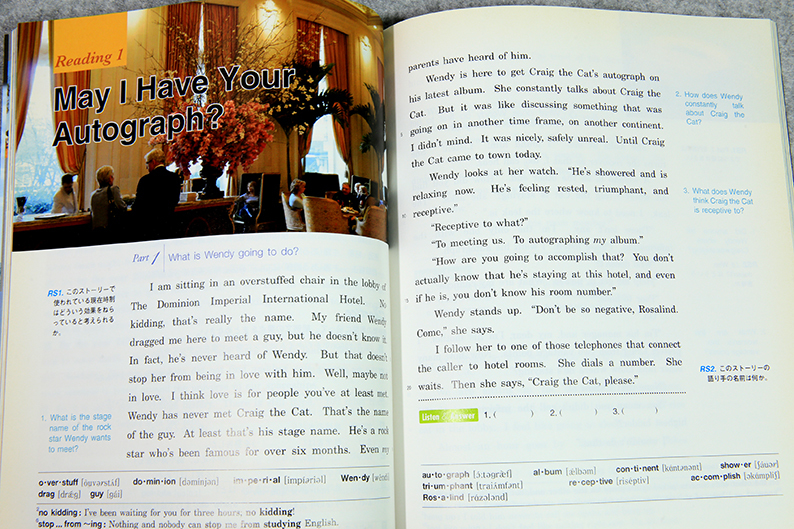 Reading 1
May I Have Your
Autograph?
Part 1 What is Wendy going to do?
RS1. このストーリーで
使われている現在時制
はどういう効果をねら
っていると考えられる
か。
I am sitting in an overstuffed chair in the lobby of
The Dominion Imperial International Hotel. No
kidding, that's really the name. My friend Wendy
dragged me here to meet a guy, but he doesn't know it.
In fact, he's never heard of Wendy. But that doesn't
stop her from being in love with him. Well, maybe not
in love. I think love is for people you've at least met.
Wendy has never met Craig the Cat. That's the name
of the guy. At least that's his stage name. He's a rock
star who's been famous for over six months. Even my
1. What is the stage
name of the rock
star Wendy wants
to meet?
o·ver·stuff [òʊvərstʌ́f] do·min·ion [dəmínjən] im·pe·ri·al [impíəriəl] Wen·dy [wéndi]
drag [drǽg] guy [gái]
no kidding: I've been waiting for you for three hours, no kidding!
stop ... from ~ing: Nothing and nobody can stop me from studying English.
parents have heard of him.
Wendy is here to get Craig the Cat's autograph on
his latest album. She constantly talks about Craig the
Cat. But it was like discussing something that was
5 going on in another time frame, on another continent.
I didn't mind. It was nicely, safely unreal. Until Craig
the Cat came to town today.
Wendy looks at her watch. "He's showered and is
relaxing now. He's feeling rested, triumphant, and
10 receptive."
"Receptive to what?"
"To meeting us. To autographing my album."
"How are you going to accomplish that? You don't
actually know that he's staying at this hotel, and even
15 if he is, you don't know his room number."
Wendy stands up. "Don't be so negative, Rosalind.
Come," she says.
I follow her to one of those telephones that connect
the caller to hotel rooms. She dials a number. She
20 waits. Then she says, "Craig the Cat, please."
2. How does Wendy
constantly talk
about Craig the
Cat?
3. What does Wendy
think Craig the Cat
is receptive to?
RS2. このストーリーの
語り手の名前は何か。
Listen & Answer 1. ( ) 2. ( ) 3. ( )
au·to·graph [ɔ́:təgræf] al·bum [ǽlbəm] con·ti·nent [kɑ́ntənənt] show·er [ʃáuər]
tri·um·phant [traiʌ́mfənt] re·cep·tive [riséptiv] ac·com·plish [əkɑ́mpliʃ]
Ros·a·lind [rɑ́zələnd]